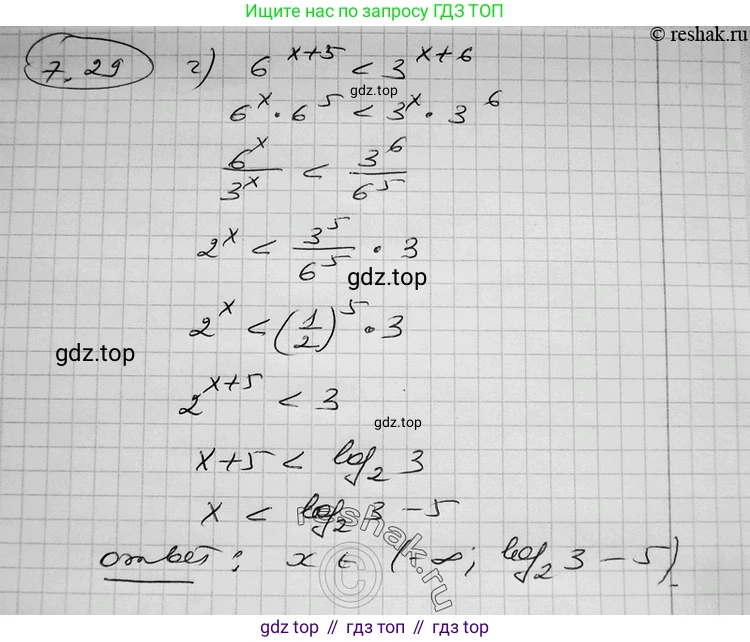 Ищите нас по запросу ГДЗ ТОП
© reshak.ru
7.29 г) 6^{x+5} < 3^{x+6}
gdz.top
6^x · 6^5 < 3^x · 3^6
6^x / 3^x < 3^6 / 6^5
2^x < 3^5 / 6^5 · 3
gdz.top
2^x < (1/2)^5 · 3
gdz.top
2^{x+5} < 3
gdz.top
x+5 < log_2 3
x < log_2 3 - 5
reshak.ru
ответ: x ∈ (-∞; log_2 3 - 5)
©
gdz.top // гдз.топ // гдз.top